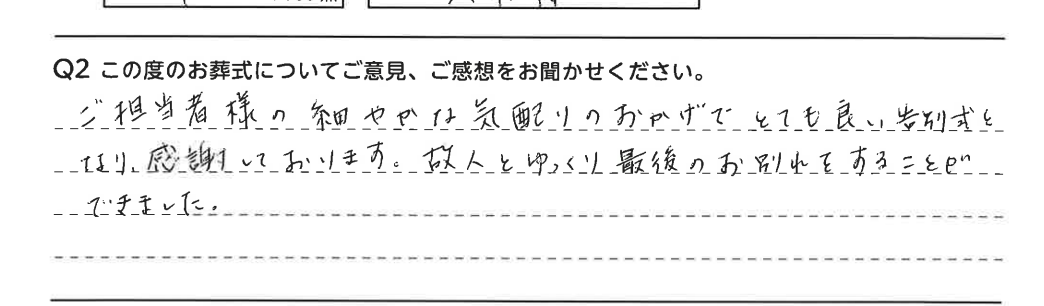 Q2 この度のお葬式についてご意見、ご感想をお聞かせください。
ご担当者様の細やかな気配りのおかげでとても良い告別式と
なり、感謝しております。故人とゆっくり最後のお別れをすることが
できました。